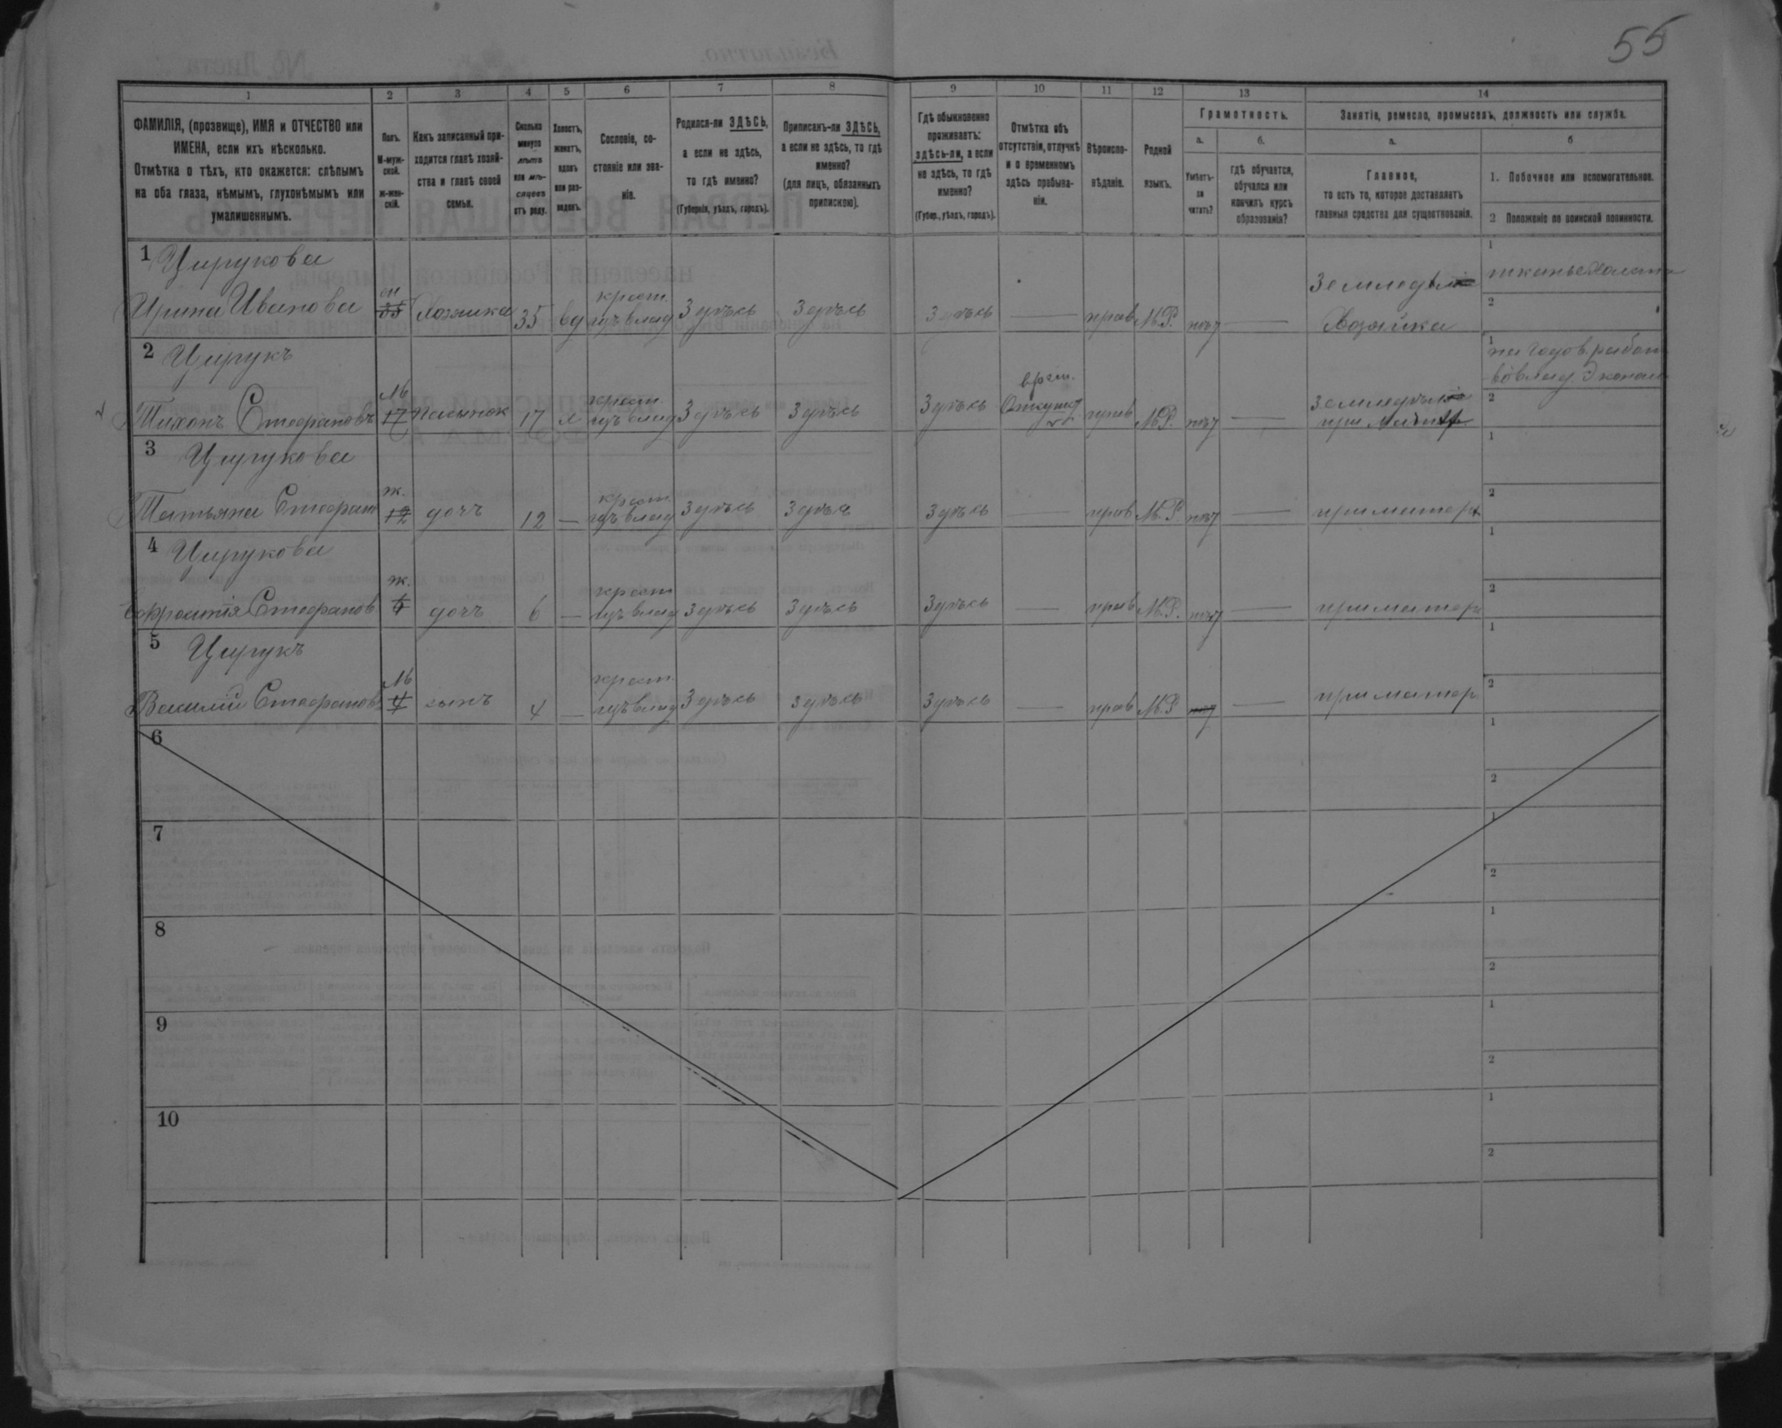 55
1 2 3 4 5 6 7 8 9 10 11 12 13 14
ФАМИЛІЯ, (прозвище), ИМЯ и ОТЧЕСТВО или
ИМЕНА, если ихъ нѣсколько.
Отмѣтка о тѣхъ, кто окажется: слѣпымъ
на оба глаза, нѣмымъ, глухонѣмымъ или
умалишеннымъ.
Полъ.
М-муж-
ской.
ж-жен-
скій.
Какъ записанный при-
ходится главѣ хозяй-
ства и главѣ своей
семьи.
Сколько
минуло
лѣтъ
или мѣ-
сяцевъ
отъ роду.
Холостъ,
женатъ,
вдовъ
или раз-
веденъ.
Сословіе, со-
стояніе или зва-
ніе.
Родился-ли ЗДѢСЬ,
а если не здѣсь,
то гдѣ именно?
(Губернія, уѣздъ, городъ).
Приписанъ-ли ЗДѢСЬ,
а если не здѣсь, то гдѣ
именно?
(для лицъ, обязанныхъ
припискою).
Гдѣ обыкновенно
проживаетъ:
здѣсь-ли, а если
не здѣсь, то гдѣ
именно?
(Губер., уѣздъ, городъ).
Отмѣтка объ
отсутствіи, отлучкѣ
и о временномъ
здѣсь пребыва-
ніи.
Вѣроиспо-
вѣданіе.
Родной
языкъ.
Грамотность.
а. б.
Умѣетъ-
ли
читать?
Гдѣ обучается,
обучался или
кончилъ курсъ
образованія?
Занятіе, ремесло, промыселъ, должность или служба.
а. б
Главное,
то есть то, которое доставляетъ
главныя средства для существованія.
1. Побочное или вспомогательное.
2 Положеніе по воинской повинности.
1 Цирукова
Ирина Иванова 35 Хозяйка 35 вд крест. изъ влад Здѣсь Здѣсь Здѣсь — прав М.Р. нѣт — Хозяйка
1
2
2 Цирукъ
Тихонъ Стефановъ 17 пасынок 17 х крест изъ влад Здѣсь Здѣсь Здѣсь прав М.Р. нѣт —
1
2
3 Цирукова
Татьяна Стефан ж. 12 дочь 12 — крест изъ влад Здѣсь Здѣсь Здѣсь — прав М.Р. нѣт — при матери
1
2
4 Цирукова
Ефросинія Стефанов ж. 6 дочь 6 — крест изъ влад Здѣсь Здѣсь Здѣсь — прав М.Р. нѣт — при матер
1
2
5 Цирукъ
Василий Стефановъ М 4 сынъ 4 — крест изъ влад Здѣсь Здѣсь Здѣсь — прав М.Р — при матер
1
2
6
1
2
7
1
2
8
1
2
9
1
2
10
1
2